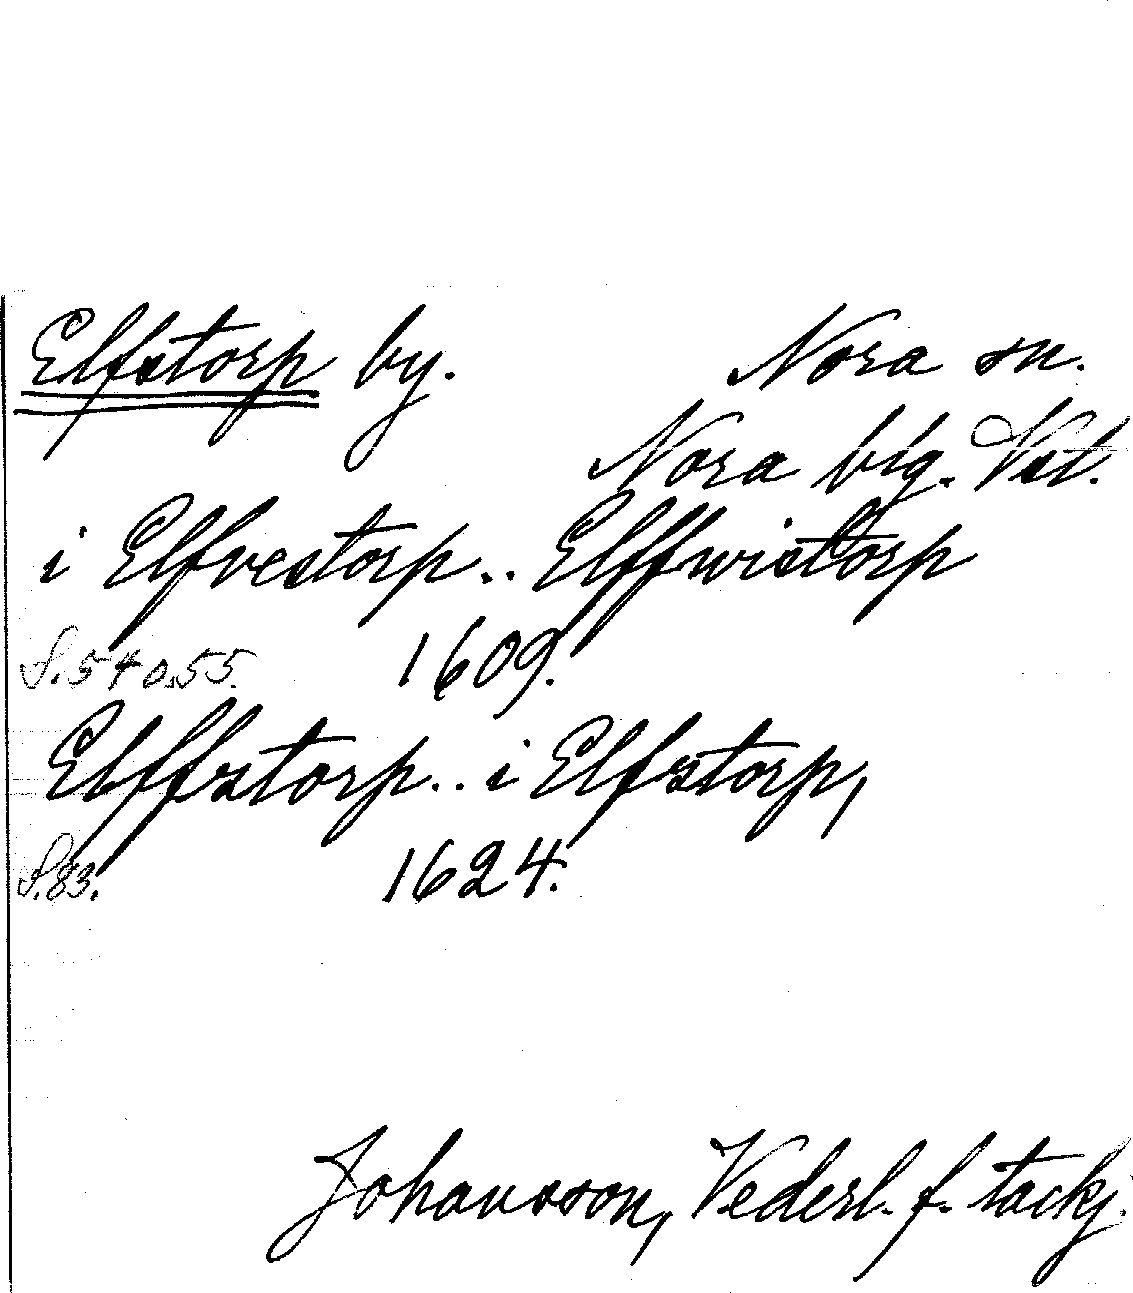 Elfstorp by. Nora sn.
Nora blg. Vstl.
i Elfvestorp.. Elffwistorp
S. 54 o. 55. 1609.
Elffztorp.. i Elfztorp,
S. 83. 1624.
Johansson, Vederl. f. tackj.